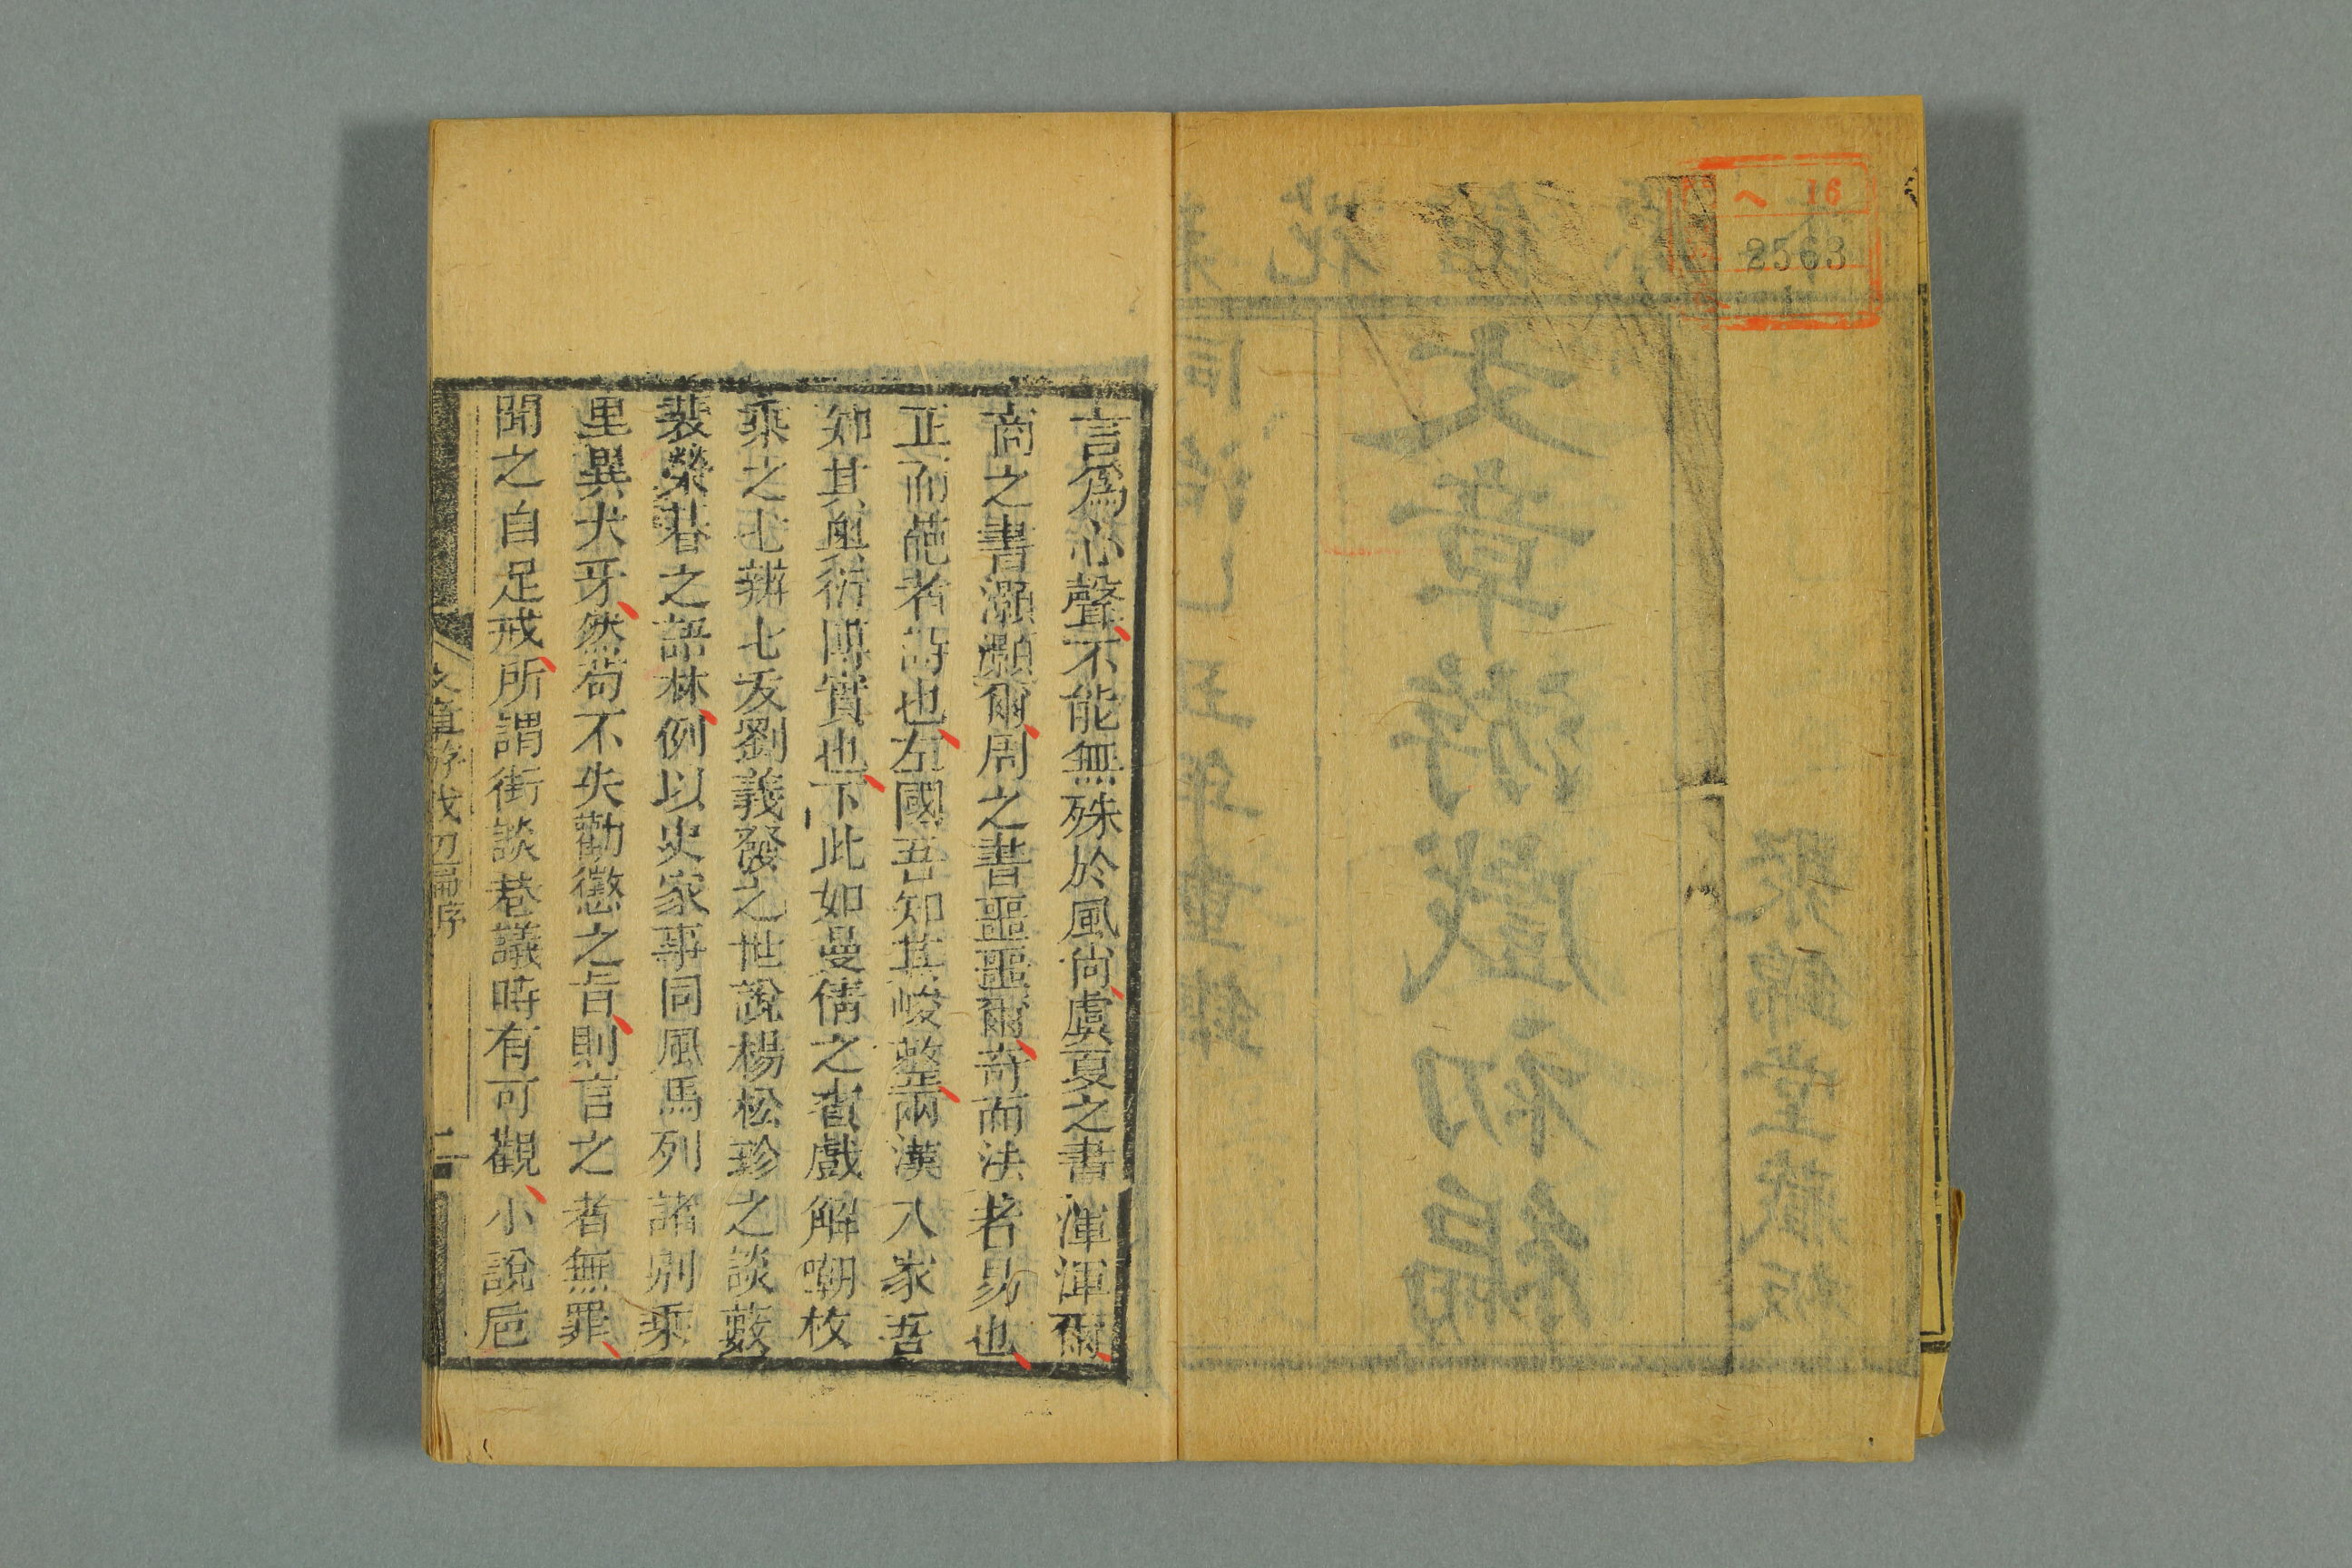 へ 16
2563
1
文章游戲初編
同治乙丑年重鐫
聚錦堂藏板
言爲心聲不能無殊於風尚虞夏之書渾渾爾
商之書灝灝爾周之書噩噩爾奇而法者易也
正而葩者詩也左國吾知其峻整兩漢八家吾
知其氣衍厚實也下此如曼倩之賓戲解嘲枚
乘之七辨七友劉義發之世說楊松玢之談藪
裴榮期之語林例以史家事同風馬列諸別乘
里異犬牙然苟不失勸懲之旨則言之者無罪
聞之自足戒所謂街談巷議時有可觀小說卮
文章游戲初編序